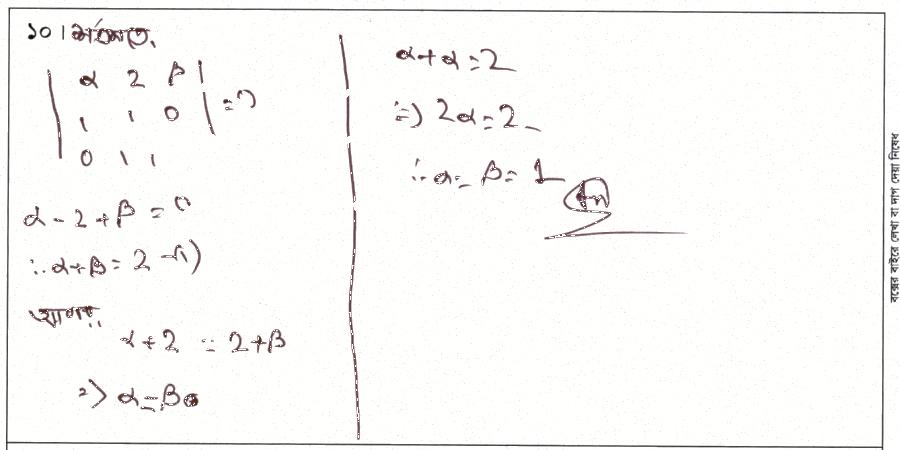 ১০। শর্তমতে,
| α 2 β |
| 1 1 0 | = 0
| 0 1 1 |
α - 2 + β = 0
∴ α + β = 2 -(i)
আবার,
α + 2 = 2 + β
⇒ α = β
α + α = 2
⇒ 2α = 2
∴ α = β = 1
বক্সের বাইরে লেখা বা দাগ দেয়া নিষেধ